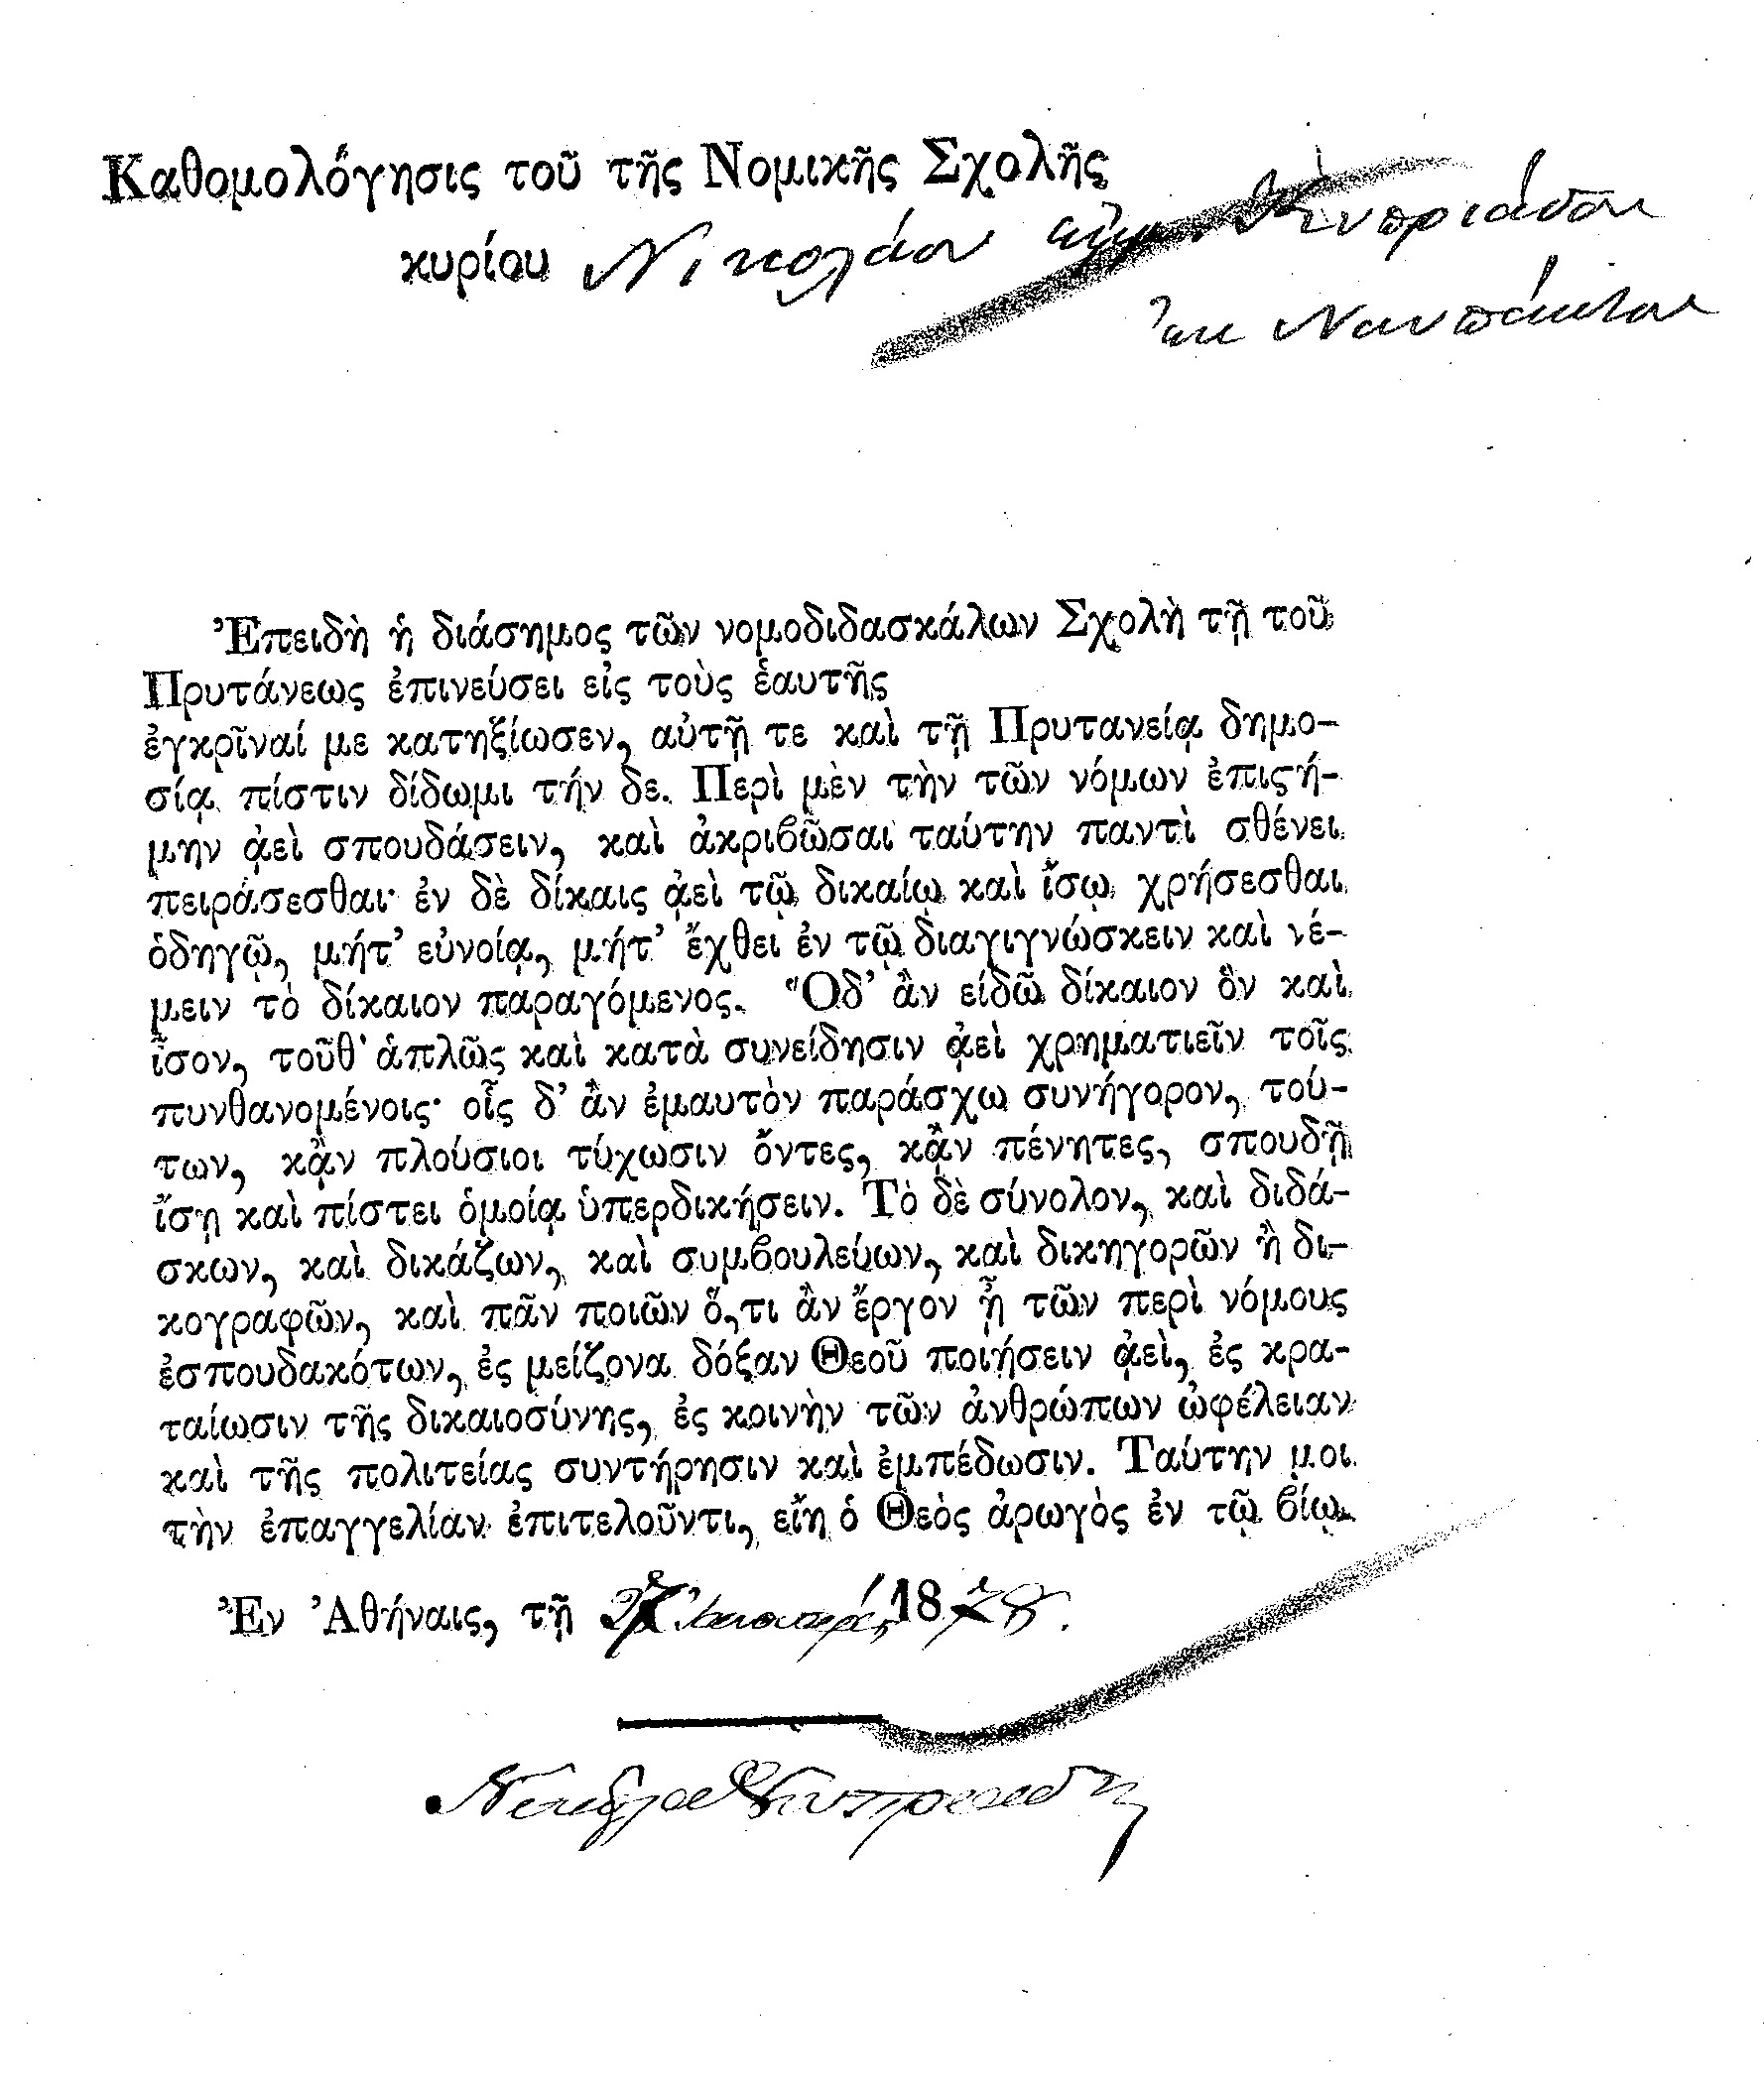 Καθομολόγησις τοῦ τῆς Νομικῆς Σχολῆς
κυρίου Νικολάου Κυπριάδου
ἐκ Ναυπάκτου
Ἐπειδὴ ἡ διάσημος τῶν νομοδιδασκάλων Σχολὴ τῇ τοῦ
Πρυτάνεως ἐπινεύσει εἰς τοὺς ἑαυτῆς
ἐγκρῖναί με κατηξίωσεν, αὐτῇ τε καὶ τῇ Πρυτανείᾳ δημο-
σίᾳ πίστιν δίδωμι τήν δε. Περὶ μὲν τὴν τῶν νόμων ἐπιϛή-
μην ᾀεὶ σπουδάσειν, καὶ ἀκριβῶσαι ταύτην παντὶ σθένει
πειράσεσθαι· ἐν δὲ δίκαις ᾀεὶ τῷ δικαίῳ καὶ ἴσῳ χρήσεσθαι
ὁδηγῷ, μήτ' εὐνοίᾳ, μήτ' ἔχθει ἐν τῷ διαγιγνώσκειν καὶ νέ-
μειν τὸ δίκαιον παραγόμενος. Ὅδ' ἂν εἰδῶ δίκαιον ὂν καὶ
ἶσον, τοῦθ' ἁπλῶς καὶ κατὰ συνείδησιν ᾀεὶ χρηματιεῖν τοῖς
πυνθανομένοις· οἷς δ' ἂν ἐμαυτὸν παράσχω συνήγορον, τού-
των, κᾂν πλούσιοι τύχωσιν ὄντες, κᾂν πένητες, σπουδῇ
ἴσῃ καὶ πίστει ὁμοίᾳ ὑπερδικήσειν. Τὸ δὲ σύνολον, καὶ διδά-
σκων, καὶ δικάζων, καὶ συμβουλεύων, καὶ δικηγορῶν ἢ δι-
κογραφῶν, καὶ πᾶν ποιῶν ὅ,τι ἂν ἔργον ᾖ τῶν περὶ νόμους
ἐσπουδακότων, ἐς μείζονα δόξαν Θεοῦ ποιήσειν ᾀεὶ, ἐς κρα-
ταίωσιν τῆς δικαιοσύνης, ἐς κοινὴν τῶν ἀνθρώπων ὠφέλειαν
καὶ τῆς πολιτείας συντήρησιν καὶ ἐμπέδωσιν. Ταύτην μοι
τὴν ἐπαγγελίαν ἐπιτελοῦντι, εἴη ὁ Θεὸς ἀρωγὸς ἐν τῷ βίῳ.
Ἐν Ἀθήναις, τῇ 1878.
Νικόλαος Κυπριάδης